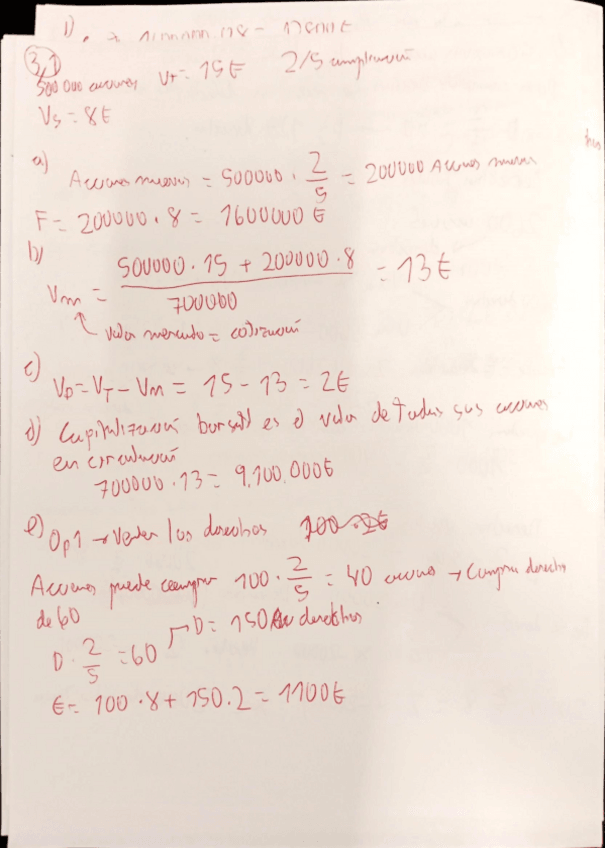 1)
3,1
500 000 acciones Vt = 15€ 2/5 ampliación
Vs = 8€
a) Acciones nuevas = 500000 · 2/5 = 200000 Acciones nuevas
F = 200000 · 8 = 1600000 €
b)
Vm = (500000 · 15 + 200000 · 8) / 700000 = 13€
valor mercado = cotización
c) VD = VT - VM = 15 - 13 = 2€
d) Capitalización bursatil es el valor de todas sus acciones
en circulación
700000 · 13 = 9.100.000€
e) Op1 → Vender los derechos
Acciones puede comprar 100 · 2/5 = 40 acciones → Compra derechos
de 60
D · 2/5 = 60 → D = 150 derechos
€ = 100 · 8 + 150 · 2 = 1100€